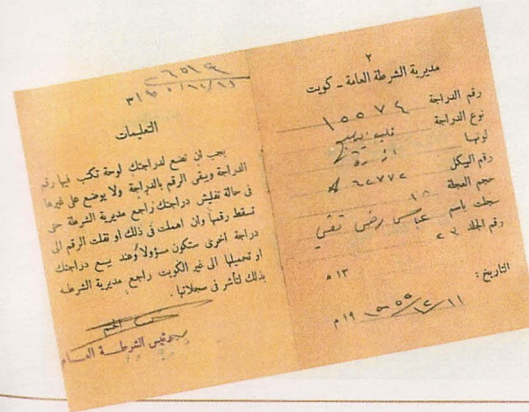 ٢
مديرية الشرطة العامة - كويت
رقم الدراجة ١٥٥٧٤
نوع الدراجة
لونها
رقم الهيكل ٦٢٧٧٢
حجم العجلة ١٨
سجلت باسم عباس رضى تقي
رقم الجلد ٢٣
١٣ ه
التاريخ :
١٩ م
٣١
التعليمات
يجب ان تضع لدراجتك لوحة تكتب فيها رقم
الدراجة ويبقى الرقم بالدراجة ولا يوضع على غيرها
فى حالة تفليش دراجتك راجع مديرية الشرطة حتى
تسقط رقمها وان اهملت فى ذلك او نقلت الرقم الى
دراجة اخرى ستكون مسؤولا وعند بيع دراجتك
او تحميلها الى غير الكويت راجع مديرية الشرطه
بذلك لتأشر فى سجلاتها .
الختم
رئيس الشرطة العام